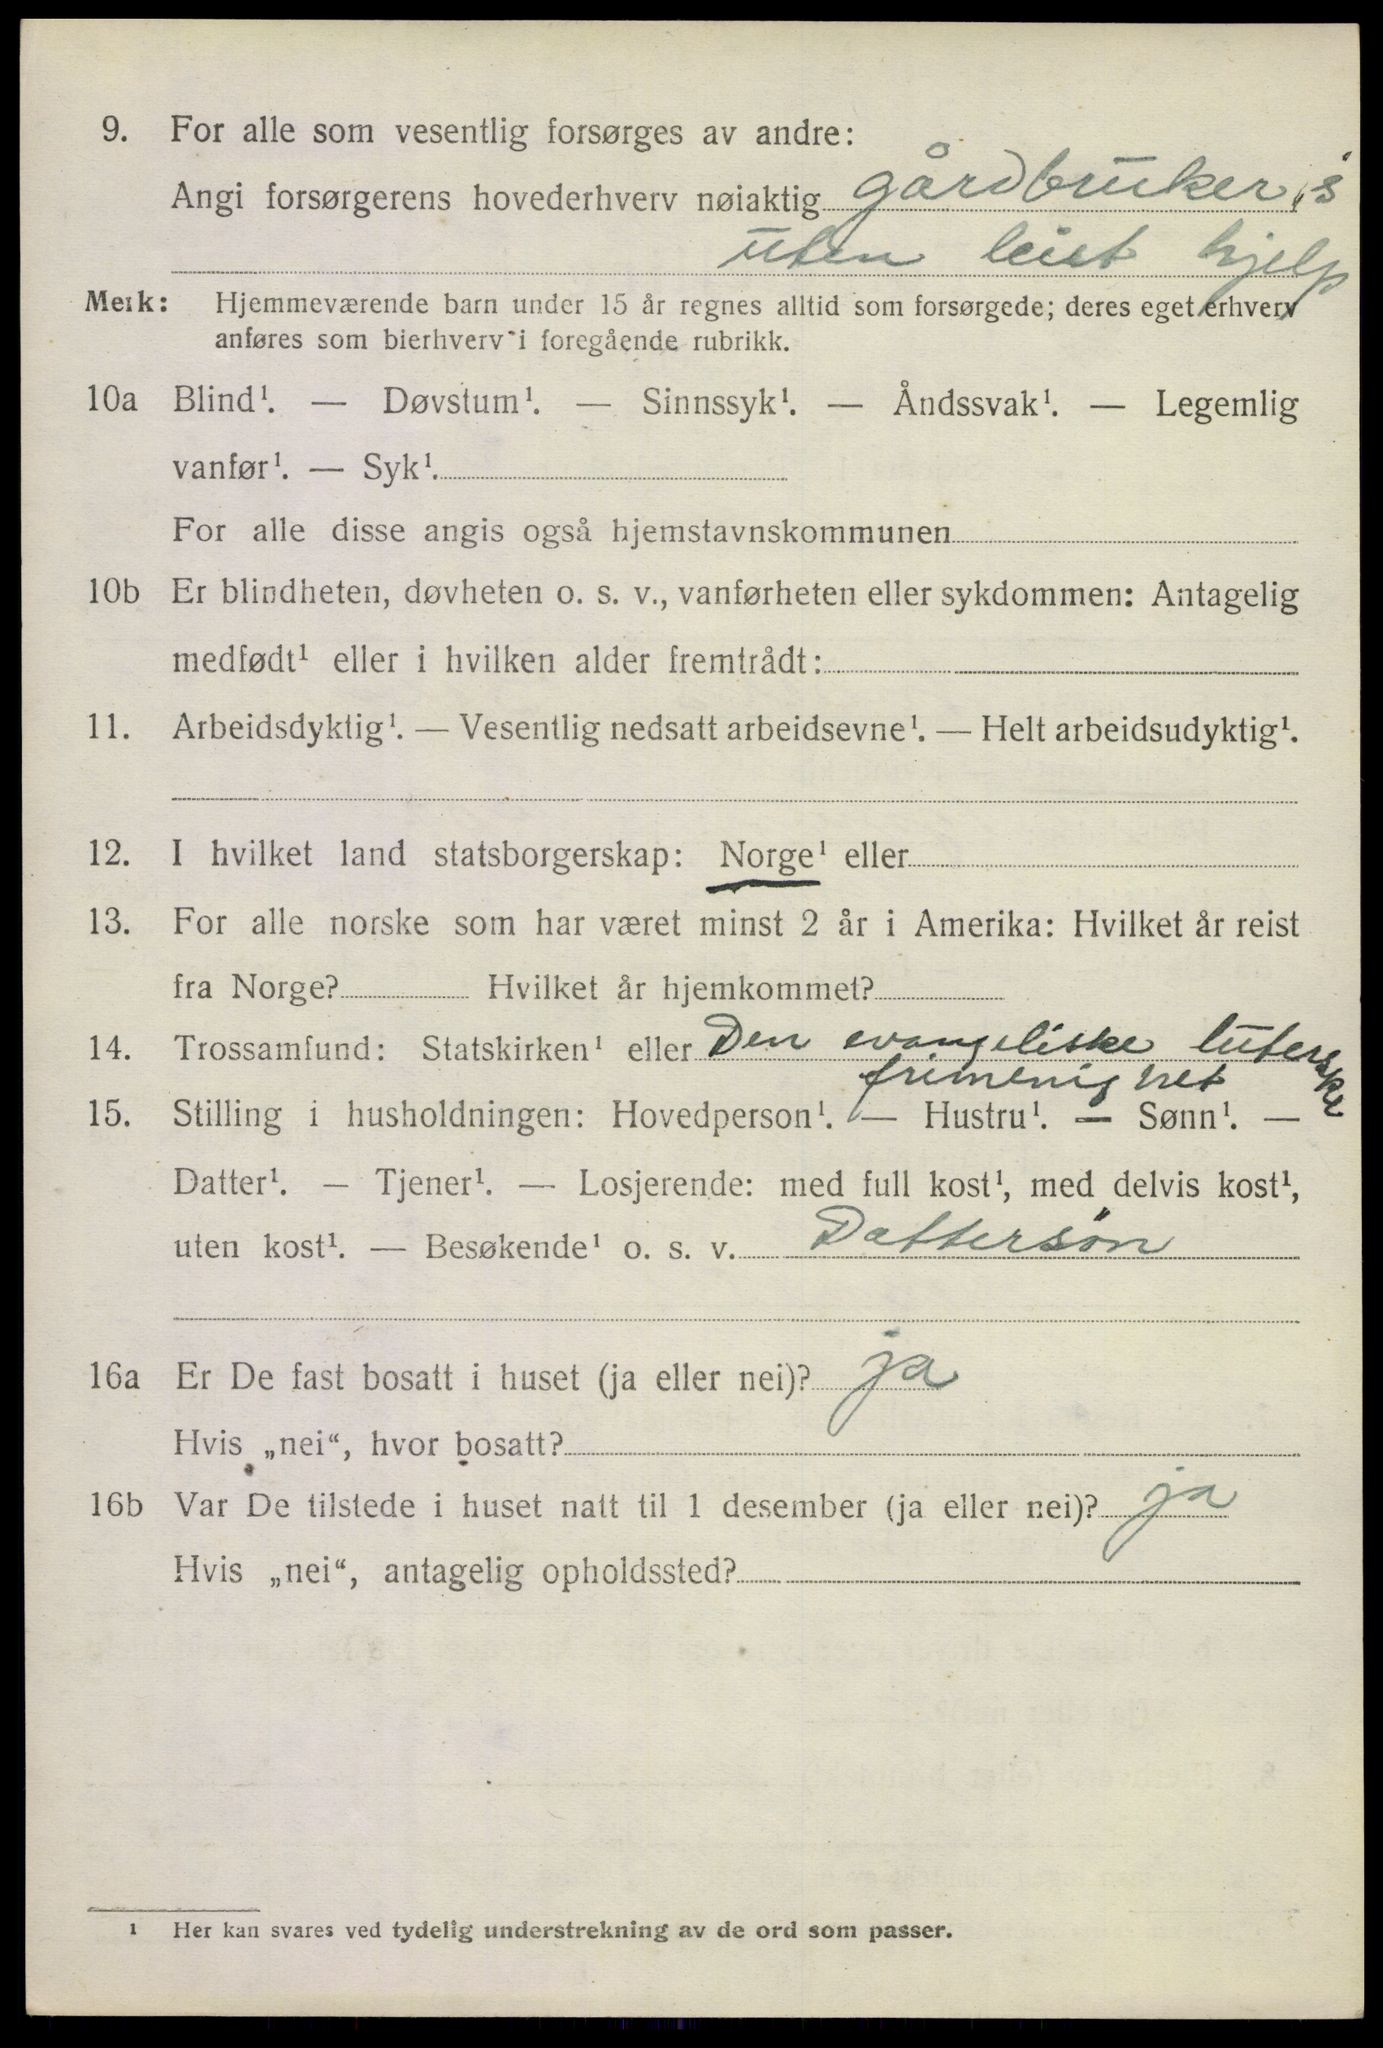 9. For alle som vesentlig forsørges av andre:
Angi forsørgerens hovederhverv nøiaktig gårdbruker, s
uten leiet hjelp
Merk: Hjemmeværende barn under 15 år regnes alltid som forsørgede; deres eget erhverv
anføres som bierhverv i foregående rubrikk.
10a Blind¹. — Døvstum¹. — Sinnssyk¹. — Åndssvak¹. — Legemlig
vanfør¹. — Syk¹.
For alle disse angis også hjemstavnskommunen
10b Er blindheten, døvheten o. s. v., vanførheten eller sykdommen: Antagelig
medfødt¹ eller i hvilken alder fremtrådt:
11. Arbeidsdyktig¹. — Vesentlig nedsatt arbeidsevne¹. — Helt arbeidsudyktig¹.
12. I hvilket land statsborgerskap: Norge¹ eller
13. For alle norske som har været minst 2 år i Amerika: Hvilket år reist
fra Norge? Hvilket år hjemkommet?
14. Trossamfund: Statskirken¹ eller Den evangeliske luterske
frimenighet
15. Stilling i husholdningen: Hovedperson¹. — Hustru¹. — Sønn¹. —
Datter¹. — Tjener¹. — Losjerende: med full kost¹, med delvis kost¹,
uten kost¹. — Besøkende¹ o. s. v. Dattersøn
16a Er De fast bosatt i huset (ja eller nei)? ja
Hvis „nei“, hvor bosatt?
16b Var De tilstede i huset natt til 1 desember (ja eller nei)? ja
Hvis „nei“, antagelig opholdssted?
¹ Her kan svares ved tydelig understrekning av de ord som passer.